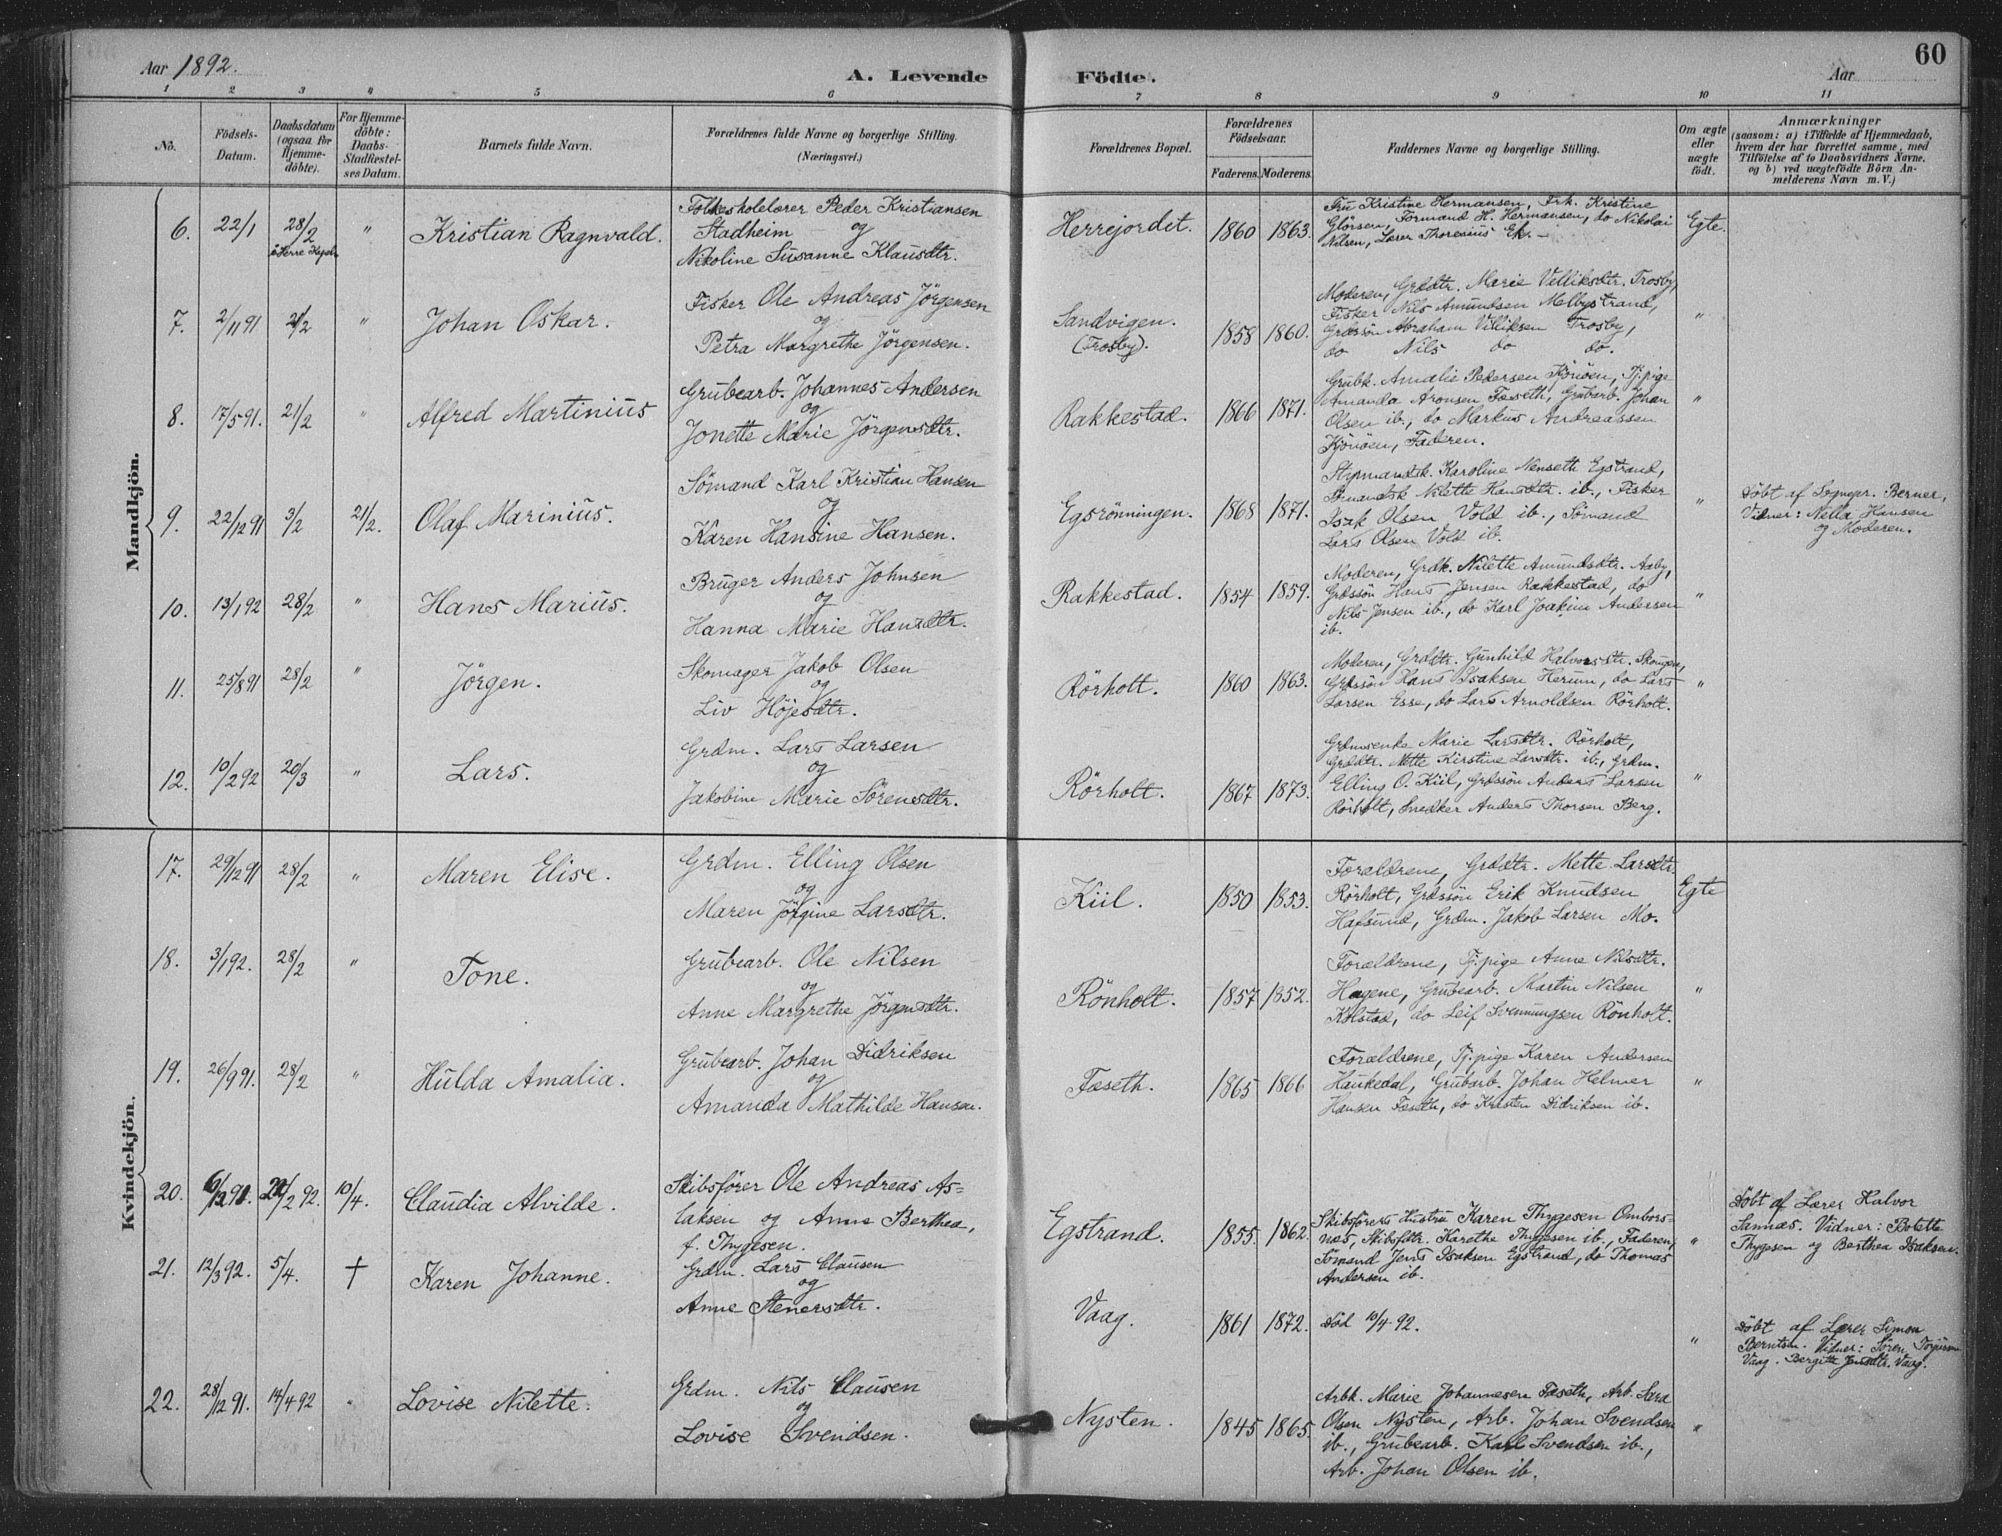 Aar 1892.
A. Levende Födte.
Aar
60
1 2 3 4 5 6 7 8 9 10 11
Nö.
Födsels-Datum.
Daabsdatum (ogsaa for Hjemmedöbte).
For Hjemmedöbte: Daabs-Stadfæstelses Datum.
Barnets fulde Navn.
Forældrenes fulde Navne og borgerlige Stilling. (Næringsvei.)
Forældrenes Bopæl.
Forældrenes Födselsaar.
Faderens. Moderens.
Faddernes Navne og borgerlige Stilling.
Om ægte eller uægte födt.
Anmærkninger
(saasom: a) i Tilfælde af Hjemmedaab, hvem der har forrettet samme, med Tilföielse af to Daabsvidners Navne, og b) ved uægtefödte Börn Anmelderens Navn m. V.)
Mandkjön.
6. 22/1 28/2 " Kristian Ragnvald.
i Herre Kapel
Folkeskolelærer Peder Kristiansen
Stadheim og
Nikoline Susanne Klausdtr.
Herrejordet. 1860 1863.
Fru Kristine Hermansen, Frk. Kristine
Glörsen, Formand H. Hermansen, do Nikolai
Nilsen, Lærer Thorenius Ek. –
Egte.
7. 2/11 91 21/2 " Johan Oskar.
Fisker Ole Andreas Jörgensen
og
Petra Margrethe Jörgensen.
Sandvigen.
(Trosby).
1858 1860.
Moderen, Grdtr. Marie Velliksdtr. Trosby,
Fisker Nils Amundsen Melbystrand,
Grdssön Abraham Villiksen Trosby,
do Nils do do.
"
8. 17/5 91. 21/2 " Alfred Martinius
Grubearb. Johannes Andersen
og
Jonette Marie Jörgensdtr.
Rakkestad. 1866 1871.
Grubk. Amalie Pedersen Kjönöen, Tj.pige
Amanda Aronsen Fæseth, Grubarb. Johan
Olsen ib., do Markus Andreassen
Kjönöen, Faderen.
"
9. 22/12 91 3/2 21/2. Olaf Marinius.
Sømand Karl Kristian Hansen
og
Karen Hansine Hansen.
Egsrönningen. 1868 1871.
Stymandsk. Karoline Nenseth Egstrand,
Smandsk Nilette Hansdtr. ib., Fisker
Isak Olsen Vold ib., Sömand
Lars Olsen Vold ib.
"
Döbt af Sognepr. Berner,
Vidner: Nella Hansen
og Moderen.
10. 13/1 92 28/2 " Hans Marius.
Bruger Anders Johnsen
og
Hanna Marie Hansdtr.
Rakkestad. 1854 1859.
Moderen, Grdk. Nilette Amundsdtr. Aaby,
Grdssön Hans Jensen Rakkestad, do
Nils Jensen ib., do Karl Joakim Andersen
ib.
"
11. 25/8 91 28/2 " Jörgen.
Skomager Jakob Olsen
og
Liv Höjesdtr.
Rörholt. 1860 1863.
Moderen, Grdtr. Gunhild Halvorsdtr. Skougen,
Grdssön Hans Isaksen Herum, do Lars
Larsen Esse, do Lars Arnoldsen Rörholt.
"
12. 10/2 92 20/3 " Lars.
Grdm. Lars Larsen
og
Jakobine Marie Sörensdtr.
Rörholt. 1867 1873.
Grdmsenke Marie Larsdtr. Rörholt,
Grdtr. Mette Kirstine Larsdtr. ib., Grdm.
Elling O. Kiil, Grdssön Anders Larsen
Rörholt, Snedker Anders Thorsen Berg.
"
Kvindekjön.
17. 29/12 91 28/2 " Maren Elise.
Grdm. Elling Olsen
og
Maren Jörgine Larsdtr.
Kiil. 1850 1853.
Forældrene, Grdtr. Mette Larsdtr.
Rörholt, Grdssön Erik Knudsen
Hafsund, Grdm. Jakob Larsen Mo.
Egte
18. 3/1 92. 28/2 " Tone.
Grubearb. Ole Nilsen
og
Anne Margrethe Jörgensdtr.
Rönholt. 1857 1852.
Forældrene, Tj.pige Anne Nilsdtr.
Hagene, Grubearb. Martin Nilsen
Kolstad, do Leif Svennungsen Rönholt.
"
19. 26/9 91. 28/2 " Hulda Amalia.
Grubearb. Johan Didriksen
og
Amanda Mathilde Hansen.
Fæseth. 1865 1866
Forældrene, Tj.pige Karen Andersen
Haukedal, Grubarb. Johan Helmer
Hansen Fæseth, do Kristen Didriksen ib.
"
20. 6/12 91. 24/2 92. 10/4. Claudia Alvilde.
Skibsfører Ole Andreas As=
laksen og Anne Berthea,
f. Thygesen.
Egstrand. 1855. 1862.
Skibsförers Hustru Karen Thygesen Ombors=
næs, Skibsfdtr. Karethe Thygesen ib., Faderen,
Sømand Jens Isaksen Egstrand, do Thomas
Andersen ib.
"
Döbt af Lærer Halvor
Sannæs. Vidner: Bolette
Thygesen og Berthea Isaksen.
21. 12/3 92. 5/4. † Karen Johanne.
Grdm. Lars Clausen
og
Anne Stenersdtr.
Vaag. 1861 1872.
Död 10/4 92.
"
Döbt af Lærer Simon
Berntsen. Vidner: Sören Torjusen
Vaag. Bergitte Jensdtr. Vaag.
22. 28/12 91. 14/4 92 " Lovise Nilette.
Grdm. Nils Clausen
og
Lovise Svendsen.
Nysten. 1845 1865.
Arbk. Marie Johannesen Fæseth, Arb. Lars
Olsen Nysten, Arb. Johan Svendsen
ib., Grubearb. Karl Svendsen ib.,
Arb. Johan Olsen ib.
"